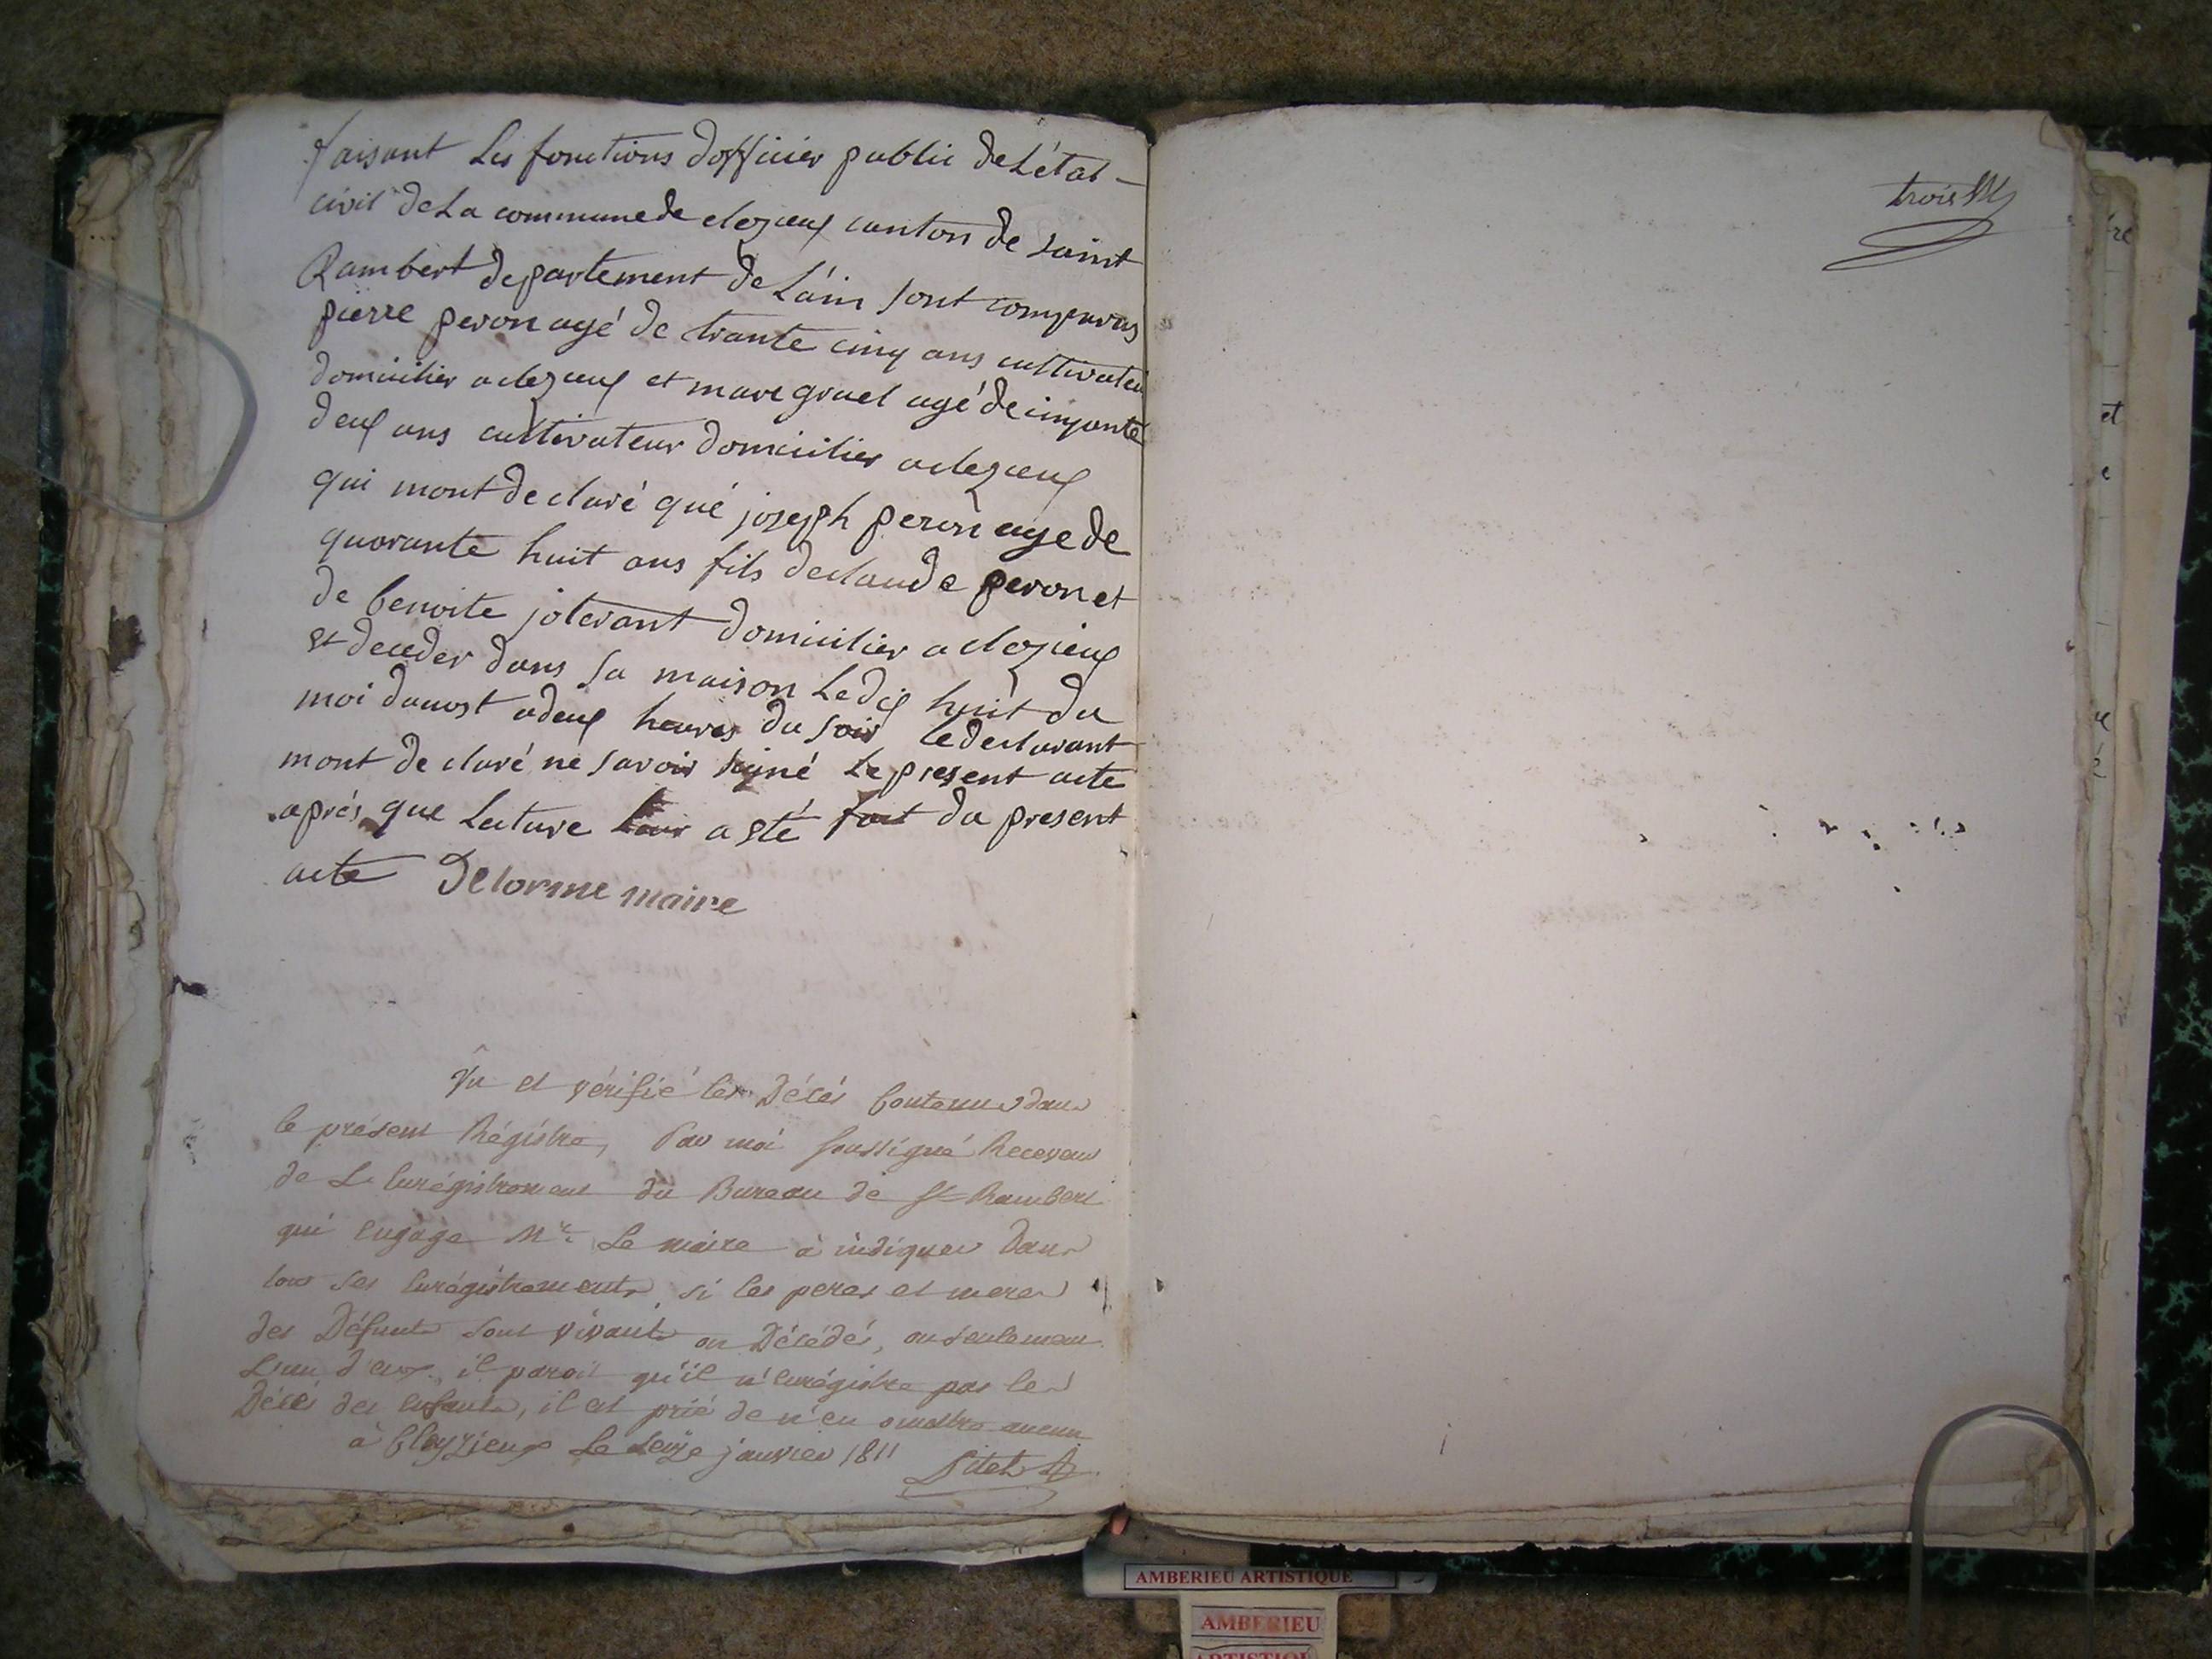 faisant les fonctions dofficier public de L'état
civil de La commune de clezieux canton de saint
Rambert departement de L'ain sont comparus
pierre peron agé de trante cinq ans cultivateur
domicilier a clezieux et marc gruel agé de cinquante
deux ans cultivateur domicilier a clezieux
qui mont declaré qué joseph peron age de
quarante huit ans fils de claude peron et
de benoite joterant domicilier a clezieux
et deceder dans sa maison Le dix huit du
moi daoust a deux heures du soir le declarant
mont declaré ne savoir signé Le present acte
aprés que Lecture leur a eté fait du present
acte Delorme maire
Vu et vérifié les Décés Contenus dans
le présent Régistre, Par moi soussigné Receveur
de L'Enrégistrement du Bureau de St Rambert
qui engage Mr. Le maire à indiquer Dans
tous ses Enrégistrements, si les peres et meres
des Défunts sont vivants ou Décédés, ou seulement
L'un d'eux, il paroit qu'il n'Enrégistre pas les
Décés des Enfants, il est prié de n'en omettre aucun
à Cleyzieux Le seize janvier 1811
trois
re
et
AMBERIEU ARTISTIQUE
AMBERIEU
ARTISTIQUE